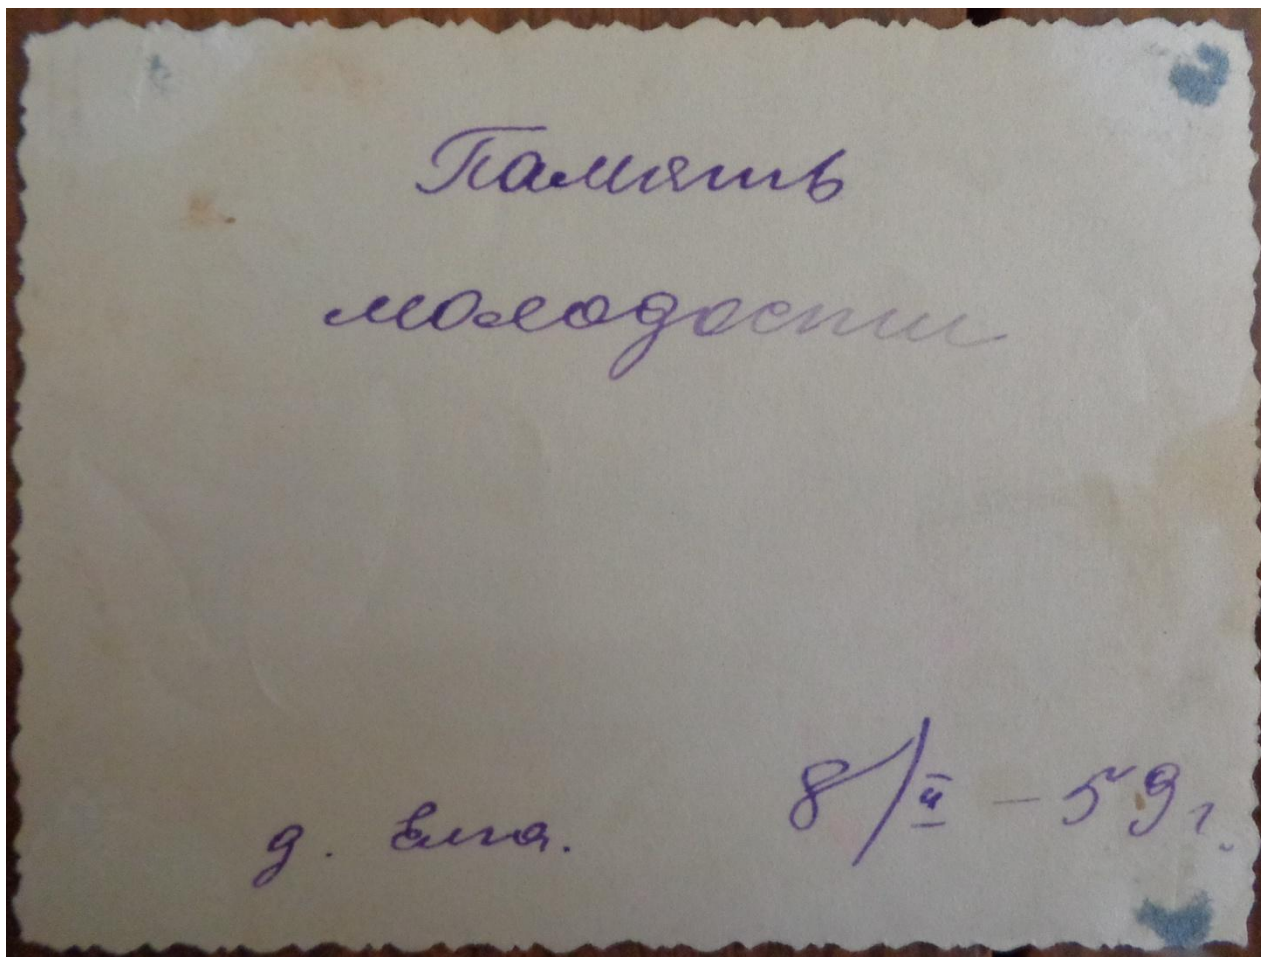 Память
молодости
д. Елга.
8/II – 59 г.